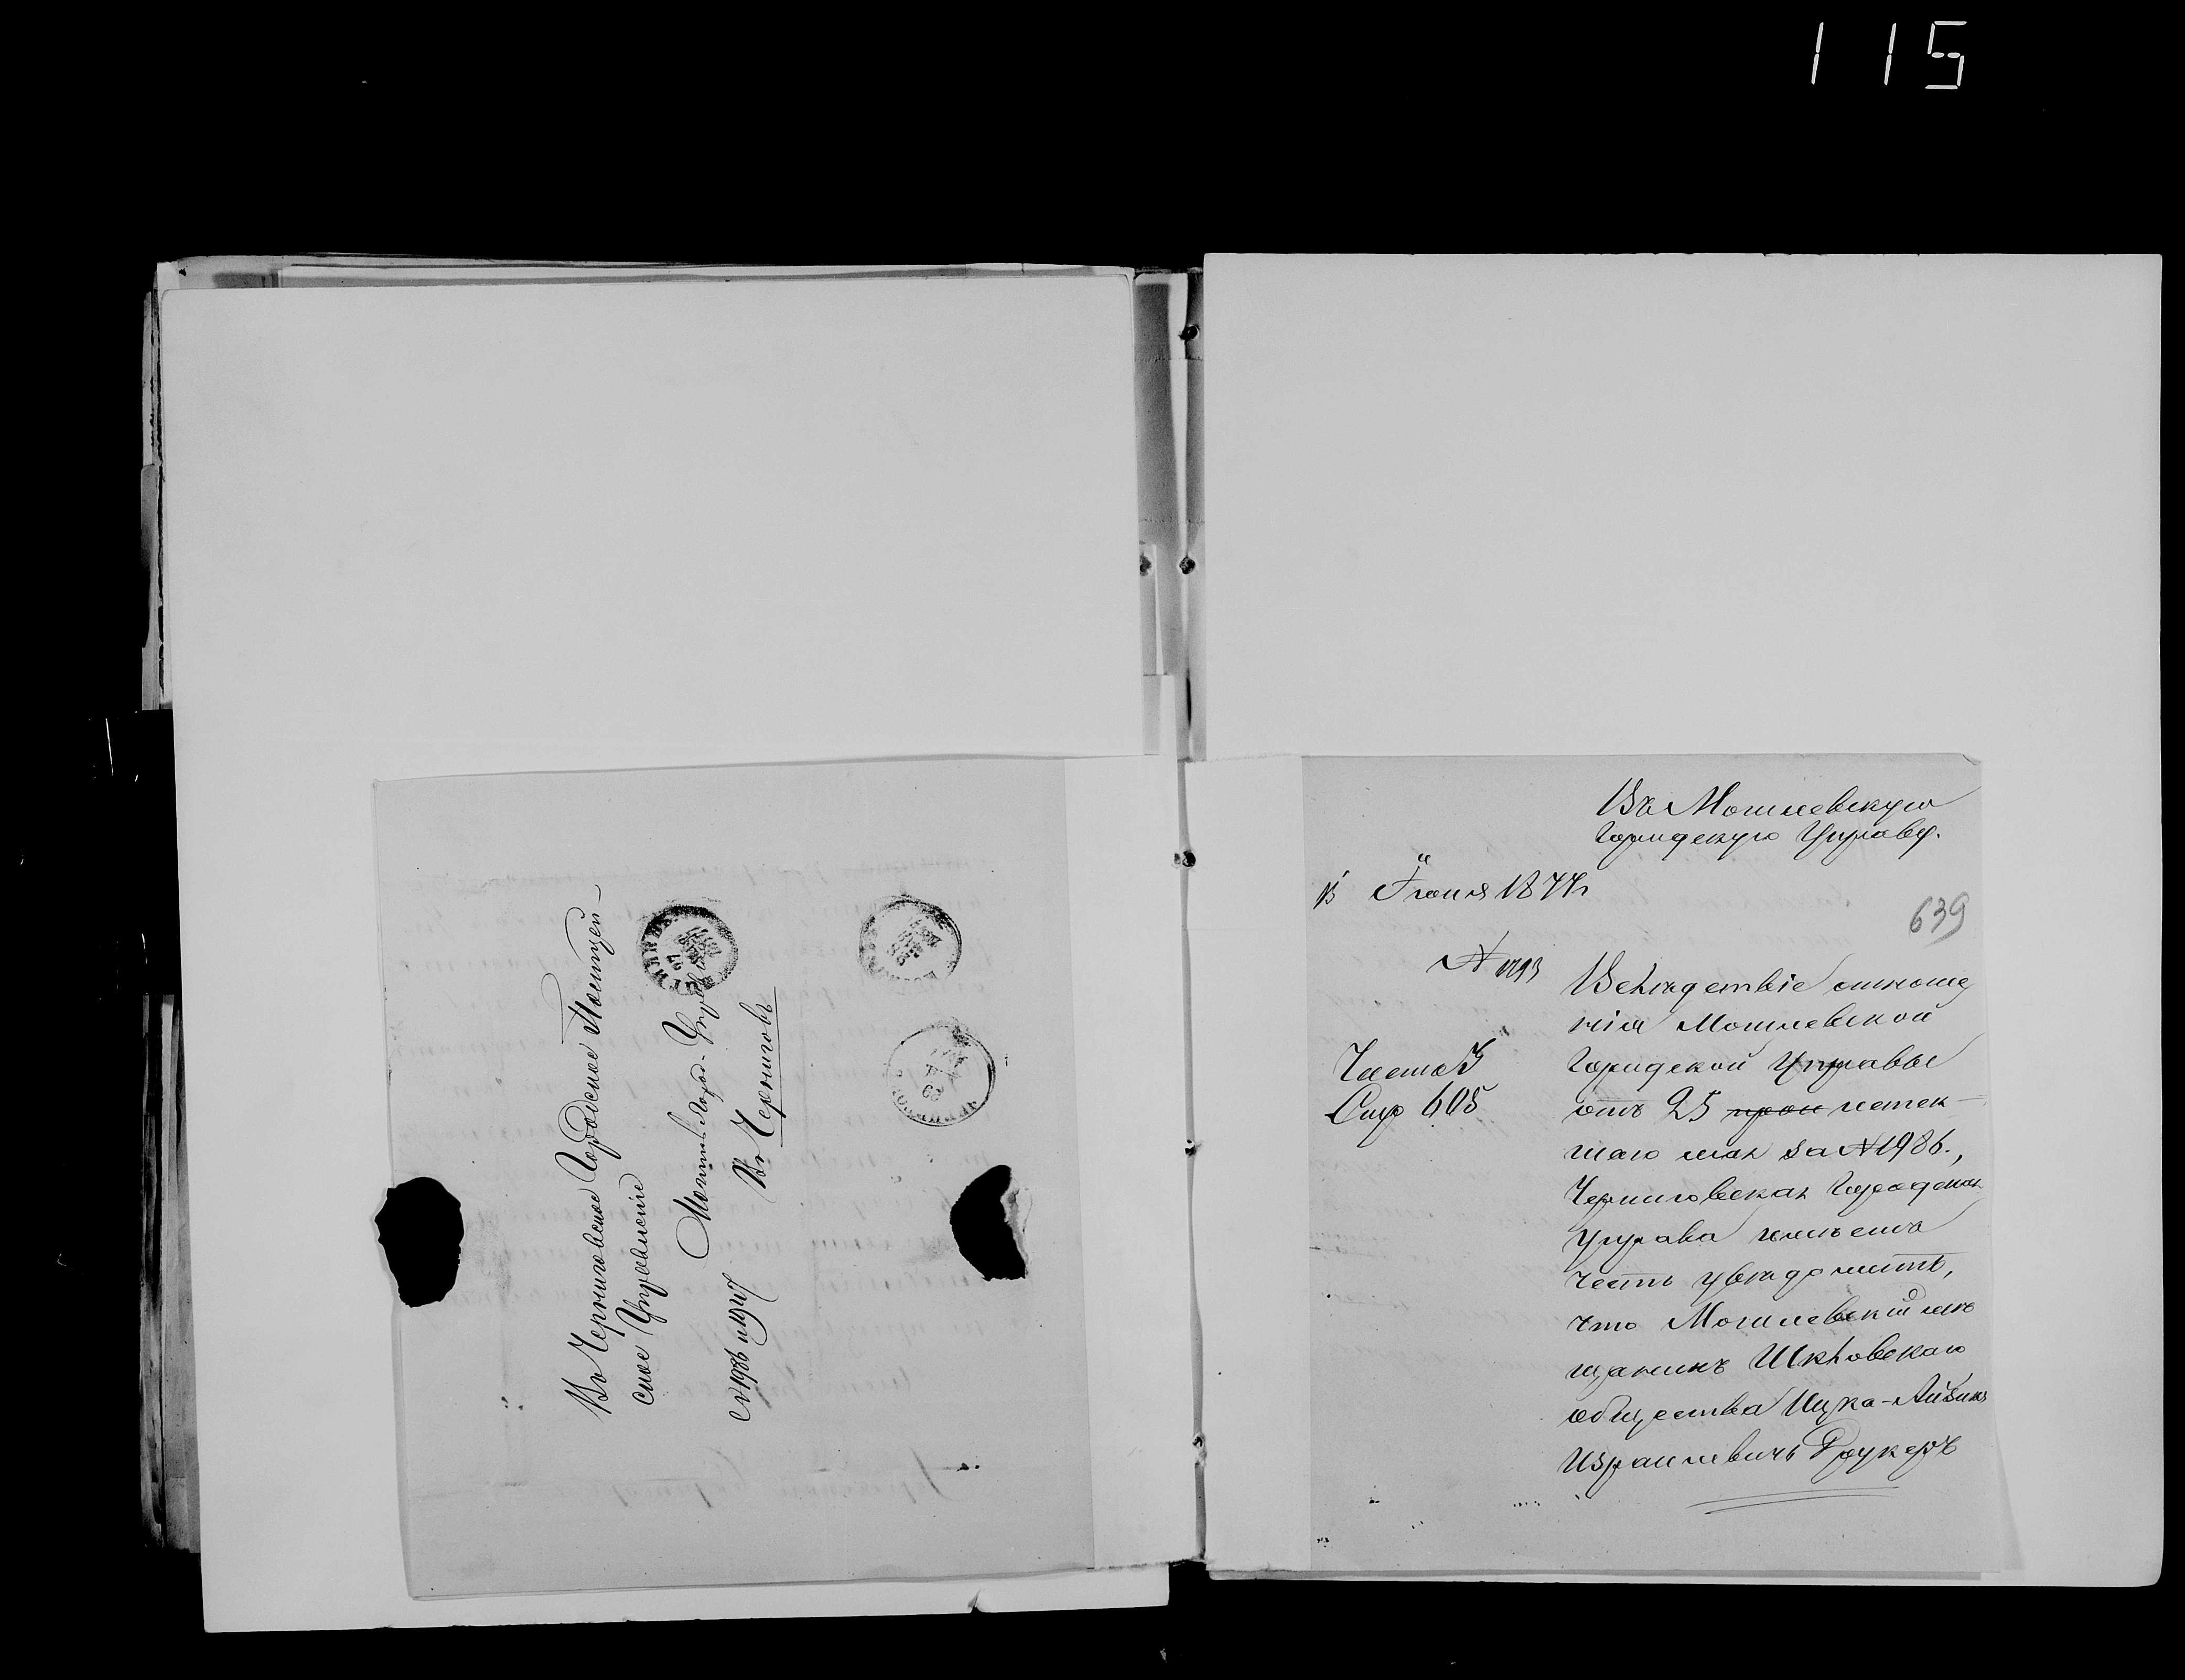 115
Въ Черниговское Городское Полицей-
ское Управленіе
Могилев. Город. Управа
№ 1986
Въ Черниговъ
Въ Могилевскую
Городскую Управу.
Іюня 1877г
639
№
Вслѣдствіе отноше
нія Могилевской
Городской Управы
отъ 25 истек-
шаго мая за №1986.,
Черниговская Городская
Управа имѣетъ
честь увѣдомить,
что Могилевскій мѣ
щанинъ Шкловскаго
общества Ицка-Айзикъ
Израилевичъ Друкеръ
Стр 605